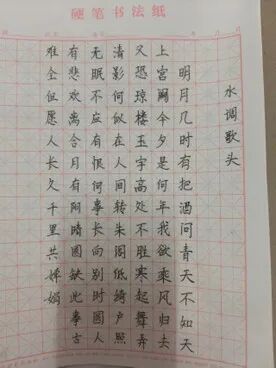 硬笔书法纸
水调歌头
明月几时有把酒问青天不知天
上宫阙今夕是何年我欲乘风归去
又恐琼楼玉宇高处不胜寒起舞弄
清影何似在人间转朱阁低绮户照
无眠不应有恨何事长向别时圆人
有悲欢离合月有阴晴圆缺此事古
难全但愿人长久千里共婵娟